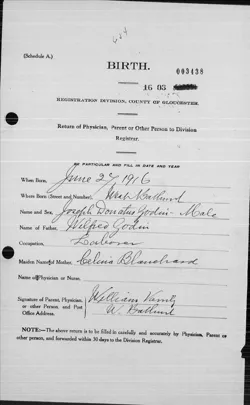 604
(Schedule A.)
BIRTH.
16 03
003438
REGISTRATION DIVISION, COUNTY OF GLOUCESTER.
Return of Physician, Parent or Other Person to Division
Registrar.
BE PARTICULAR AND FILL IN DATE AND YEAR
When Born, June 27 1916
Where Born (Street and Number), West Bathurst
Name and Sex, Joseph Donatus Godin - Male
Name of Father, Wilfred Godin
Occupation, Laborer
Maiden Name of Mother, Celina Blanchard
Name of Physician or Nurse,
Signature of Parent, Physician,
or other Person, and Post
Office Address.
William
W. Bathurst
NOTE:—The above return is to be filled in carefully and accurately by Physician, Parent
or other person, and forwarded within 30 days to the Division Registrar.